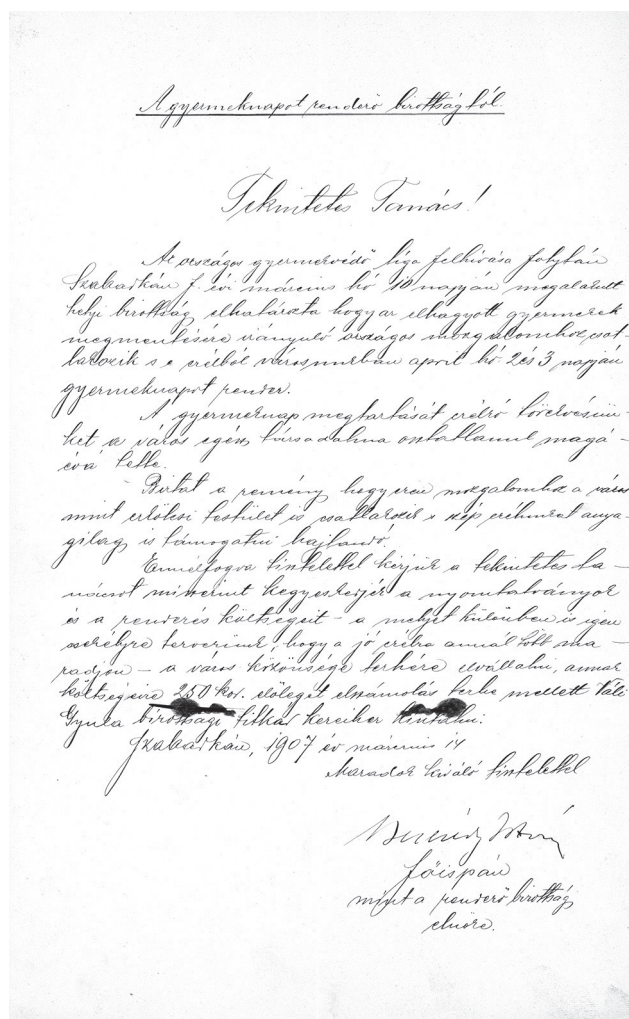 A gyermeknapot rendező bizottságtól.
Tekintetes Tanács!
Az országos gyermekvédő liga felhívása folytán
Szabadkán f. évi március hó 10 napján megalakult
helyi bizottság elhatározta hogy az elhagyott gyermekek
megmentésére irányuló országos mozgalomhoz csat-
lakozik s e czélból városunkban april hó 2 és 3 napján
gyermeknapot rendez.
A gyermeknap megtartását czélzó törekvésün-
ket a város egész társadalma osztatlanul magá-
évá tette.
Biztat a remény hogy ezen mozgalomhoz a város
mint erkölcsi testület is csatlakozik s szép czélunkat anya-
gilag is támogatni hajlandó.
Ennélfogva tisztelettel kérjük a tekintetes ta-
nácsot miszerint kegyeskedjék a nyomtatványok
és a rendezés költségeit – a melyet különben is igen
szerélyre tervezünk, hogy a jó czélra annál több ma-
radjon – a város közönsége terhére elvállalni, annak
költségeire 250 kor. előleget elszámolás terhe mellett Váli
Gyula bizottsági titkár kezeihez kiutalni.
Szabadkán, 1907 év március 14
Maradok kiváló tisztelettel
István
főispán
mint a rendező bizottság
elnöke.